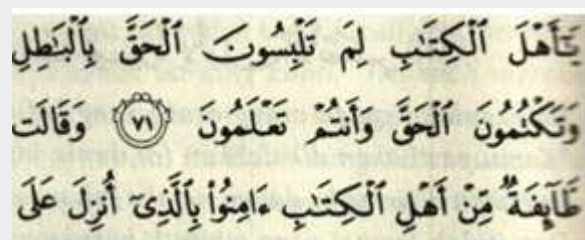 يَٰٓأَهۡلَ ٱلۡكِتَٰبِ لِمَ تَلۡبِسُونَ ٱلۡحَقَّ بِٱلۡبَٰطِلِ
وَتَكۡتُمُونَ ٱلۡحَقَّ وَأَنتُمۡ تَعۡلَمُونَ ٧١ وَقَالَت
طَّآئِفَةٞ مِّنۡ أَهۡلِ ٱلۡكِتَٰبِ ءَامِنُواْ بِٱلَّذِيٓ أُنزِلَ عَلَى